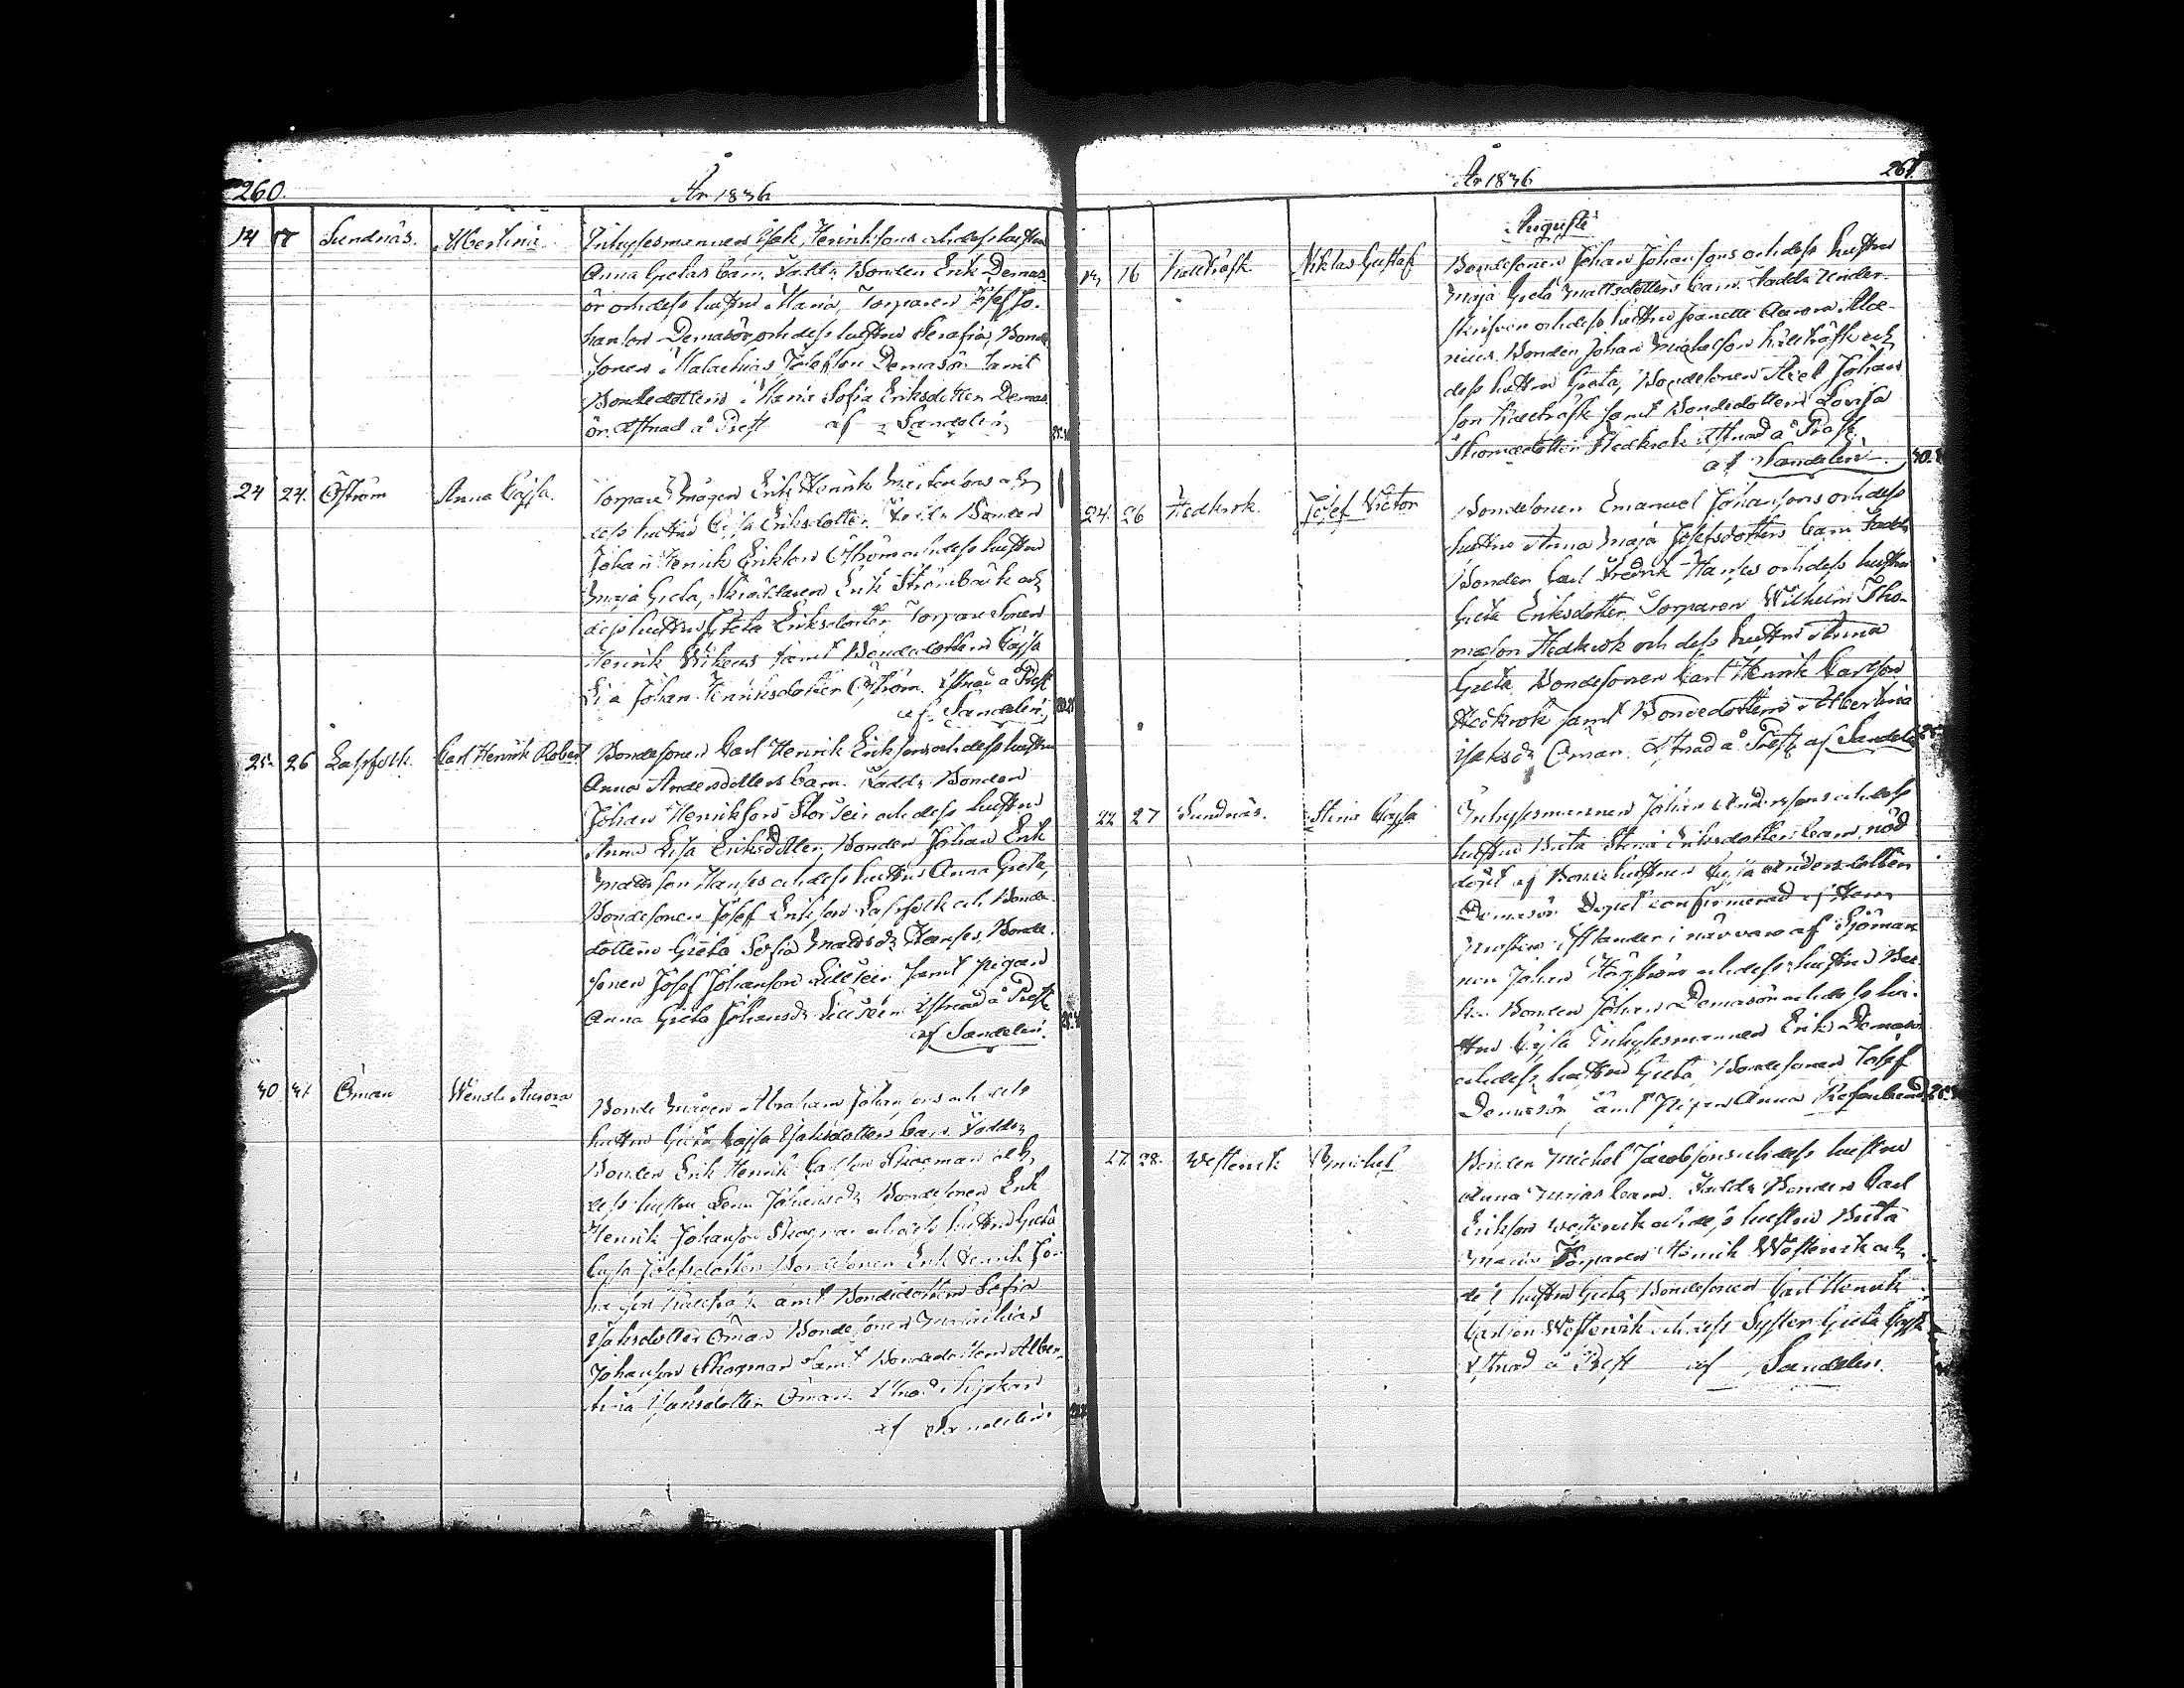 260.
År 1836
14 17 Sundnäs. Albertina. Inhysesmannen Isak Henriksons och dess hustru
Anna Gretas barn. Fadd: Bonden Erik Demas
ör och dess hustru Maria, Torparen Josef Jo-
hanson Demasör och dess hustru Serafia, Bonde
sonen Malachias Josefson Demasör samt
Bondedottern Maria Sofia Eriksdotter Demas
ör. af Sandelin
24 24. Öström Anna Cajsa. Torpare Mågen Erik Henrik och
dess hustru Cajsa Eriksdotters Bonden
Johan Henrik Erikson Öström och dess hustru
Maja Greta, Skräddaren Erik Strömbäck och
dess hustru Greta Eriksdotter Torpare Sonen
Henrik samt Bondedottern Cajsa
Lisa Johan Henriksdotter Öström. å Prest
af Sandelin
25 26 Lassfolk. Carl Henrik Robert Bondesonen Carl Henrik Eriksons och dess hustru
Anna Andersdotters barn. Fadd: Bonden
Johan Henrikson Storsein och dess hustru
Anna Lisa Eriksdotter, Bonden Johan Erik
Mattsson Hanses och dess hustru Anna Greta,
Bondesonen Josef Erikson Lassfolk och Bonde-
dottern Greta Sofia Mattsd: Hanses, Bonde-
sonen Josef Johanson Lillsein samt pigan
Anna Greta Johansd: Lillsein å Prest
af Sandelin.
30 31 Öman Wendla Aurora Bonde Mågen Abraham Johansons och dess
hustru Greta Cajsa Isaksdotters barn Fadd:
Bonden Erik Henrik Skogman och
dess hustru Lena Johansd: Bondesonen Erik
Henrik Johanson Skogman och dess hustru Greta
Cajsa Josefsdotter Bondesonen Erik Henrik Jo-
hanson samt Bondedottern Sofia
Isaksdotter Öman Bondesonen
Johanson Skogman samt Bondedottern Alber-
tina Isaksdotter Öman.
af Sandelin
År 1836
261.
Augusti
16 Källträsk Niklas Gustaf Bondesonen Johan Johansons och dess hustru
Maja Greta Mattsdotters barn. Fadd: Under-
skrifven och dess hustru Jeanette Aurora
Bonden Johan Michelson Källträsk och
dess hustru Greta, Bondesonen Johan
son Källträsk samt Bondedottern Lovisa
Thomædotter Hedkrok å Prest.
af Sandelin
24. 26 Hedkrok. Josef Victor Bondesonen Emanuel Johansons och dess
hustru Anna Maja Josefsdotters barn Fadd:
Bonden Carl Fredrik Hanses och dess hustru
Greta Eriksdotter Torparen Wilhelm Tho-
mæson Hedkrok och dess hustru Anna
Greta, Bondesonen Carl Henrik Carlson
Hedkrok samt Bondedottern Albertina
Isaksd: Öman. å Prest af Sandelin
22 27 Sundnäs. Stina Cajsa Inhysesmannen Johan Andersons och dess
hustru Brita Stina Eriksdotters barn, nöd
döpt af Bondehustrun Cajsa Andersdotter
Demasör Dopet confirmerad af Herr
i närvaro af Sjöman
nen Johan Högström och dess hustru
Bonden Johan Demasör och dess hu-
stru Cajsa Inhysesmannen Erik Demasör
och dess hustru Greta, Bondesonen Josef
Demasör samt Pigan Anna
27. 28. Westervik Michel Bonden Michel Jacobsons och dess hustru
Anna Marias barn. Fadd: Bonden Carl
Erikson Westervik och dess hustru Brita
Maria Torparen Henrik Westervik och
dess hustru Greta, Bondesonen Carl Henrik
Carlson Westervik och dess Syster Greta Cajsa
å Prest af Sandelin.